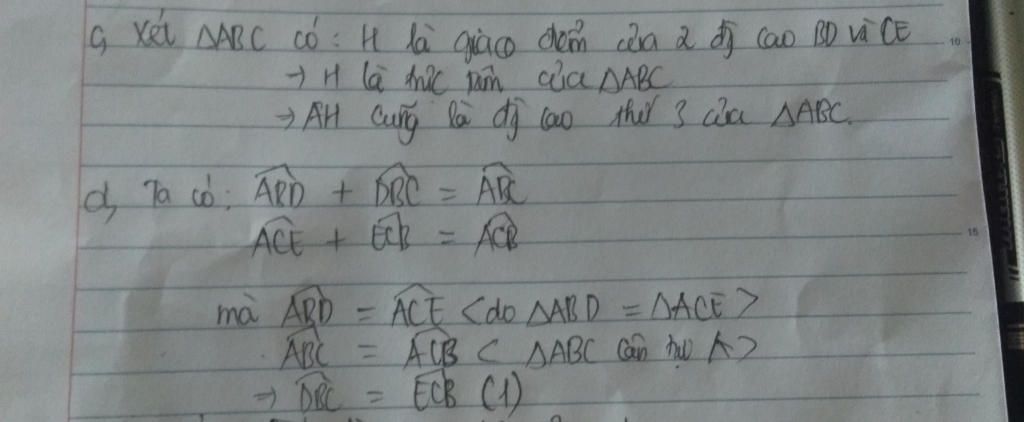 c, Xét ΔABC có: H là giao điểm của 2 đg cao BD và CE
→ H là trực tâm của ΔABC
→ AH cũng là đg cao thứ 3 của ΔABC.
d, Ta có: \widehat{ABD} + \widehat{DBC} = \widehat{ABC}
\widehat{ACE} + \widehat{ECB} = \widehat{ACB}
mà \widehat{ABD} = \widehat{ACE} < do ΔABD = ΔACE >
\widehat{ABC} = \widehat{ACB} < ΔABC cân tại A >
→ \widehat{DBC} = \widehat{ECB} (1)